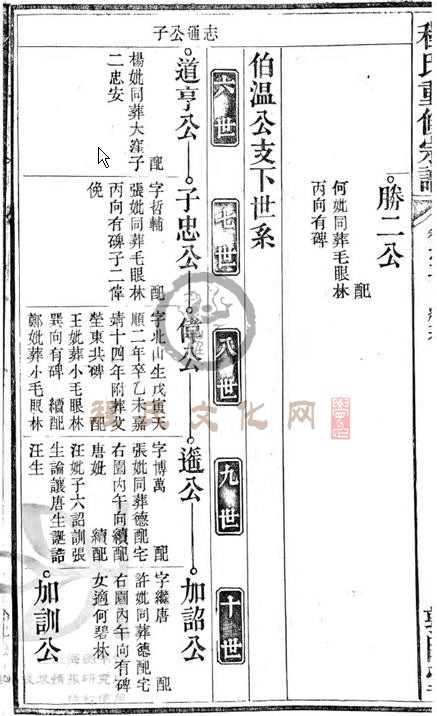 程氏重修宗譜
勝二公
配
何妣同葬毛眼林
丙向有碑
伯温公支下世系
六世
七世
八世
九世
十世
志通公子
道亨公
配
楊妣同葬大窪子
二忠安
子忠公
字哲輔 配
張妣同葬毛眼林
丙向有碑子二偉
俛
偉公
字北山生戊寅天
順二年卒乙未嘉
靖十四年附葬父
塋東共碑 配
王妣葬小毛眼林
巽向有碑 續配
鄭妣葬小毛眼林
遥公
字博萬 配
張妣同葬德配宅
右園内午向續配
唐妣 續配
汪妣子六詔訓張
生諭讓唐生誕誥
汪生
加詔公
字繼唐 配
許妣同葬德配宅
右園内午向有碑
女適何碧林
加訓公
程氏文化网